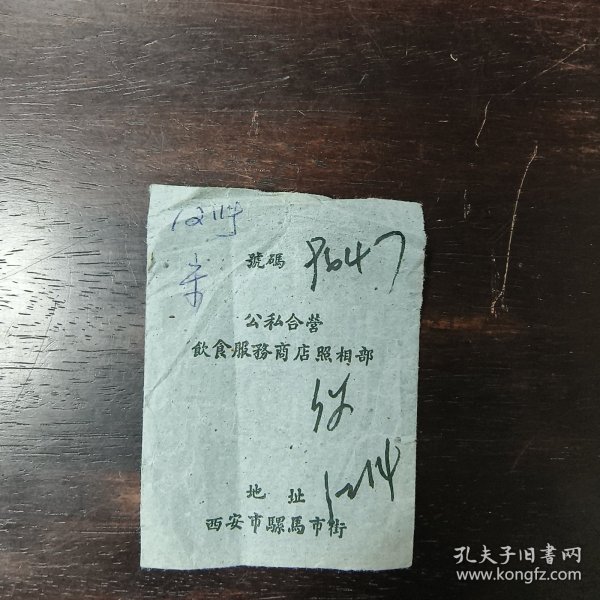 號碼 9647
公私合营
飲食服務商店照相部
地址
西安市騾馬市街
孔夫子旧書网
www.kongfz.com